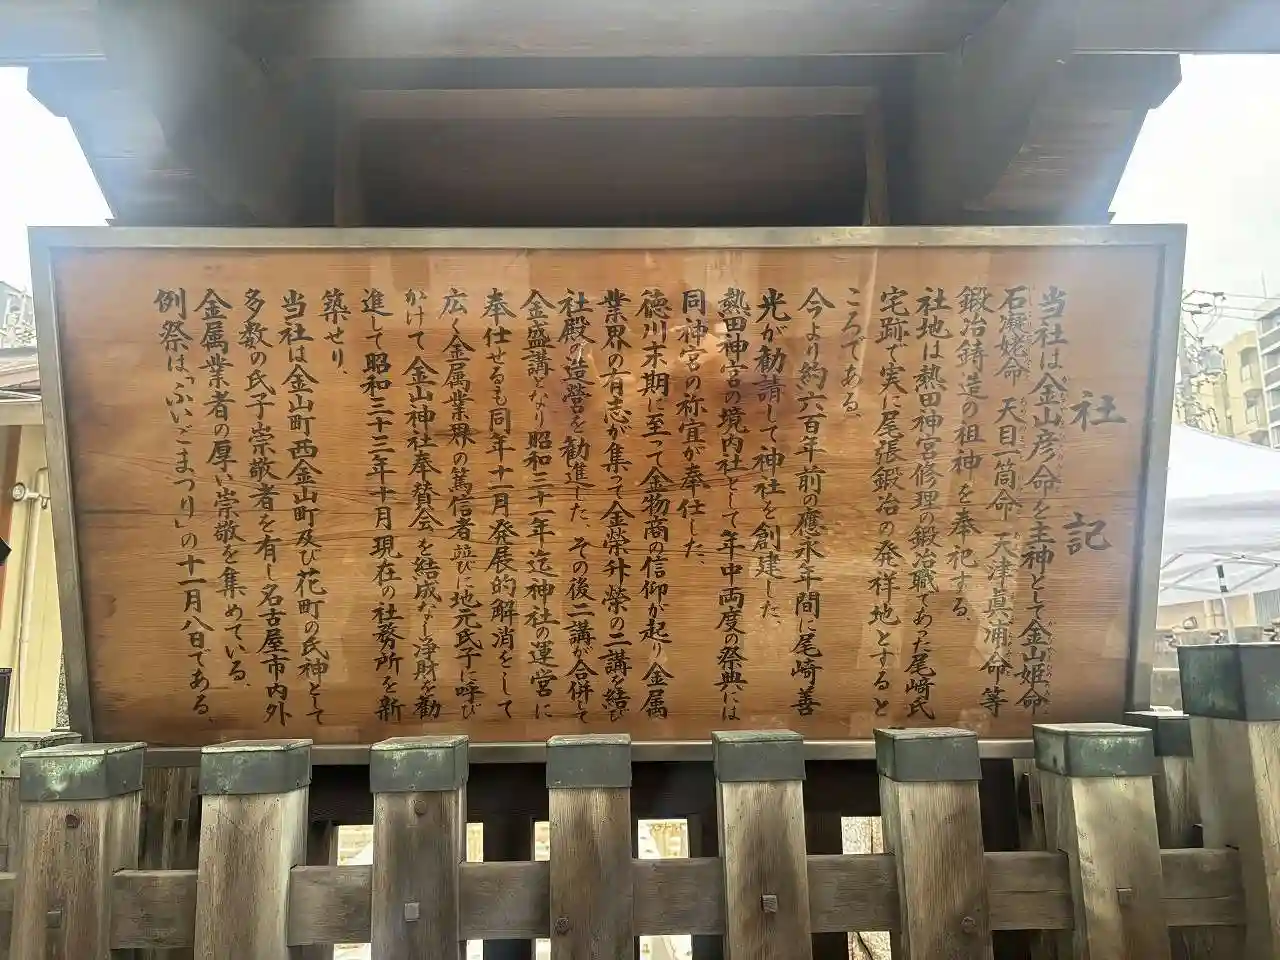 社記
当社は金山彦命を主神として金山姫命
石凝姥命 天目一箇命 天津眞浦命等
鍛冶鋳造の祖神を奉祀する、
社地は熱田神宮修理の鍛冶職であった尾崎氏
宅跡で実に尾張鍛冶の発祥地とすると
ころである、
今より約六百年前の應永年間に尾崎善
光が勧請して神社を創建した、
熱田神宮の境内社として年中両度の祭典には
同神宮の祢宜が奉仕した、
徳川末期に至って金物商の信仰が起り金属
業界の有志が集って金榮升榮の二講を結び
社殿の造営を勧進した、その後二講が合併して
金盛講となり昭和三十一年迄神社の運営に
奉仕せるも同年十一月発展的解消をして
広く金属業界の篤信者並びに地元氏子に呼び
かけて 金山神社奉賛会を結成なし浄財を勧
進して昭和三十三年十月現在の社務所を新
築せり、
当社は金山町西金山町及び花町の氏神として
多数の氏子崇敬者を有し名古屋市内外
金属業者の厚い崇敬を集めている、
例祭は「ふいごまつり」の十一月八日である、